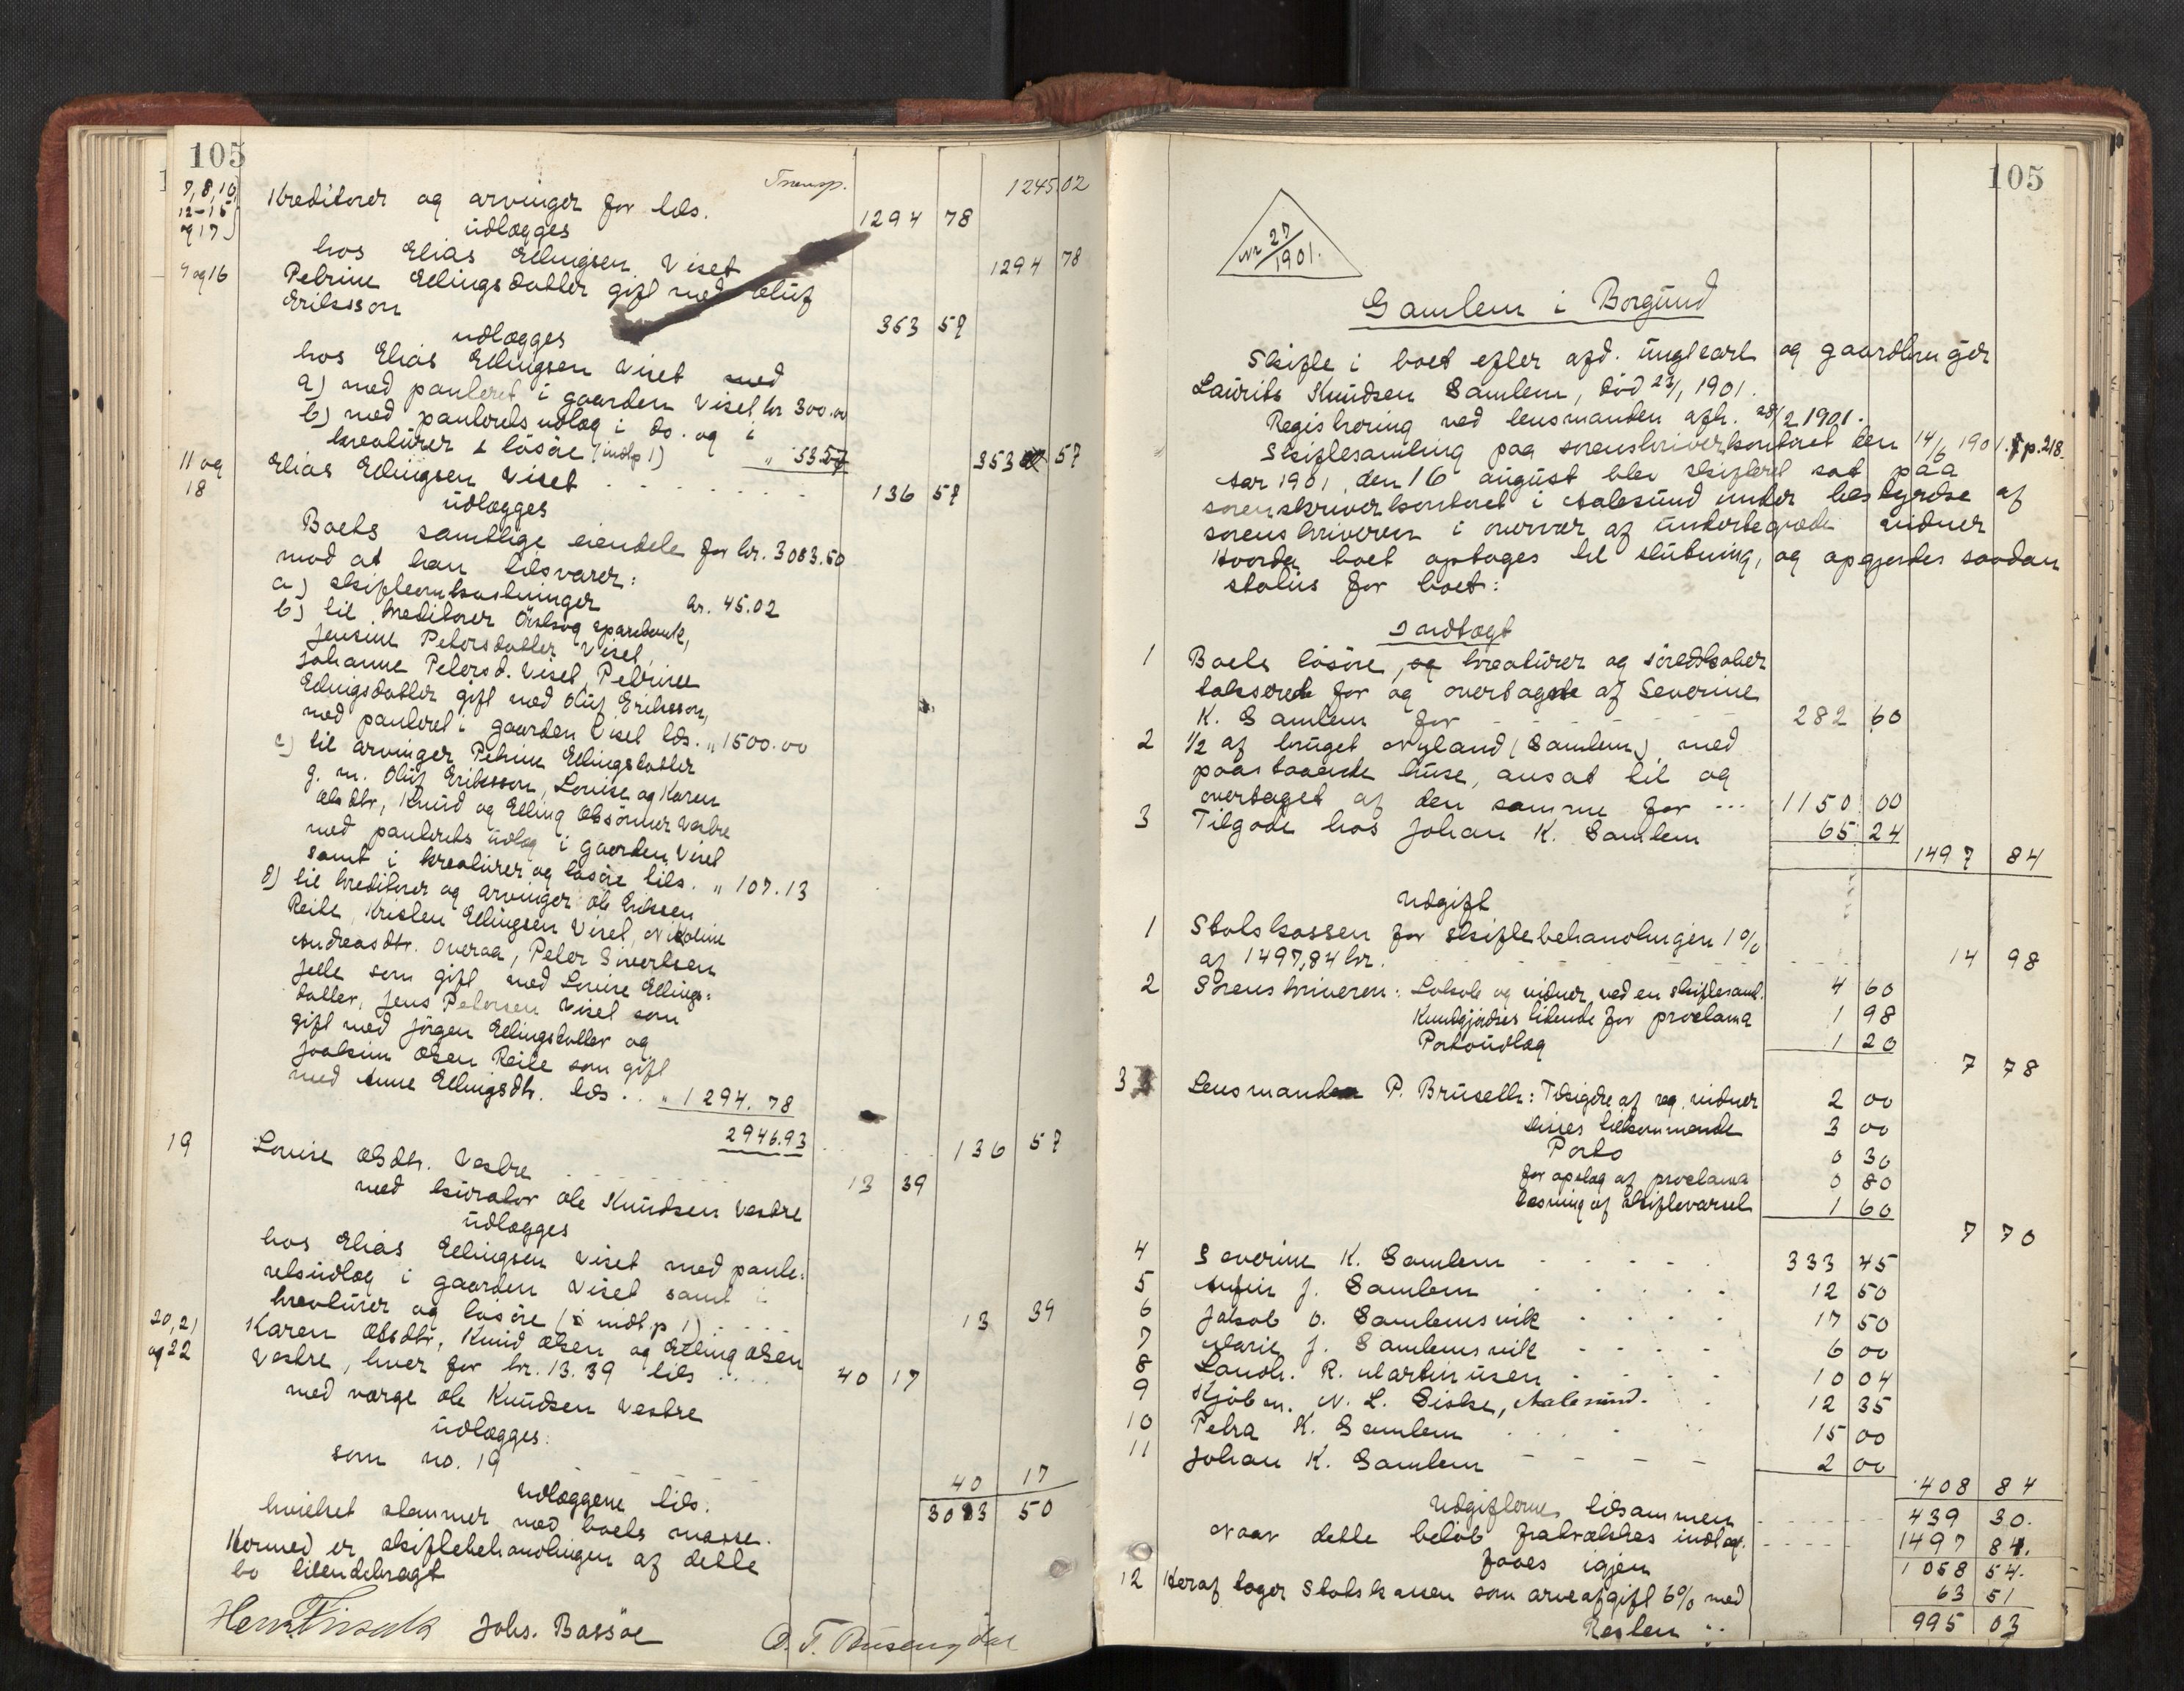 105
Transp. 1245.02
7, 8, 10, 12-15 og 17) Kreditorer og arvinger for tils. 1294 78
udlægges
hos Elias Ellingsen Viset 1294 78
9 og 16 Petrine Ellingsdatter gift med Oluf
Eriksson 363 57
udlægges
hos Elias Ellingsen Viset med
a) med panteret i gaarden Viset kr 300.00
b) med panterets udlæg i do. og i
kreatürer & løsöre (indtp 1) " 53.57 353 57
11 og 18 Elias Ellingsen Viset 136 57
udlægges
Boets samtlige eiendele for kr. 3083.50
mod at han tilsvarer:
a) skifteomkostninger kr. 45.02
b) til kreditorer Örskog sparebank,
Jensine Petersdatter Viset,
Johanne Petersd. Viset, Petrine
Ellingsdatter gift med Oluf Eriksson,
med panteret i gaarden Viset tils. " 1500.00
c) til arvinger Petrine Ellingsdatter
g. m. Oluf Eriksson, Louise og Karen
Olsdtr, Knud og Elling Olssönner Vestre
med panterets udlæg i gaarden Viset
samt i kreatürer og løsöre tils. " 107.13
d) til kreditorer og arvinger Ole Eriksen
Reite, Kristen Ellingsen Viset, Nikoline
Andreasdtr. Overaa, Peter Sivertsen
Jelle som gift med Louise Ellings=
datter, Jens Petersen Viset som
gift med Jörgen Ellingsdatter og
Joakim Olsen Reite som gift
med Anne Ellingsdtr. tils .. " 1294.78
2946.93 136 57
19 Louise Olsdtr. Vestre 13 39
med kurator Ole Knudsen Vestre
udlægges
hos Elias Ellingsen Viset med pante=
retsudlæg i gaarden Viset samt i
kreatürer og løsöre (indt.p 1) 13 39
20, 21 og 22 Karen Olsdtr, Knud Olsen og Elling Olsen
Vestre, hver for kr. 13.39 tils .... 40 17
med værge Ole Knudsen Vestre
udlægges:
som no. 19 40 17
Udlæggene tils. 3083 50
hvilket stemmer med boets masse.
Hermed er skiftebehandlingen af dette
bo tilendebragt
Johs. Bassöe
105
Nr 27/1901.
Gamlem i Borgund
Skifte i boet efter afd. ungkarl og gaardbruger
Laurits Knudsen Gamlem, död 23/1 1901.
Registrering ved lensmanden afh. 28/2 1901.
Skiftesamling paa sorenskriverkontoret den 14/6 1901. p. 218.
Aar 1901, den 16 august blev skifteret sat paa
sorenskriverkontoret i Aalesund under bestyrelse af
sorenskriveren i overvær af undertegnede vidner
Hvorda boet optoges til slutning, og opgjordes saadan
status for boet:
Indtægt
1 Boets løsöre, kreatürer og söredskaber
takserede for og overtagede af Severine
K. Gamlem for 282 60
2 1/2 af bruget Nyland (Gamlem) med
paastaaende huse, ansat til og
overtaget af den samme for ... 1150 00
3 Tilgode hos Johan K. Gamlem 65 24
1497 84
Udgift
1 Statskassen for skiftebehandlingen 1%
af 1497,84 kr. 14 98
2 Sorenskriveren: Lokale og vidner ved en skiftesaml. 4 60
Kundgjörelses tidende for proclama 1 98
Portoudlæg 1 20
7 78
3 Lensmanden P. Bruselh: Tilsigelse af reg. vidner 2 00
disses tilkommende 3 00
Porto 0 30
for opslag af proclama 0 80
læsning af skiftevarsel 1 60
7 70
4 Severine K. Gamlem 333 45
5 Anfin J. Gamlem 12 50
6 Jakob O. Gamlemsvik 17 50
7 Marie J. Gamlemsvik 6 00
8 Landh. R. Martinusen 10 04
9 Kjöbm. N. L. Giske, Aalesund. 12 35
10 Petra K. Gamlem 15 00
11 Johan K. Gamlem 2 00
408 84
Udgifterne tilsammen 439 30.
Naar dette belöb fratrækkes indtægt. 1497 84.
faaes igjen 1058 54.
12 Heraf tager Statskassen som arveafgift 6% med 63 51
Resten :. 995 03